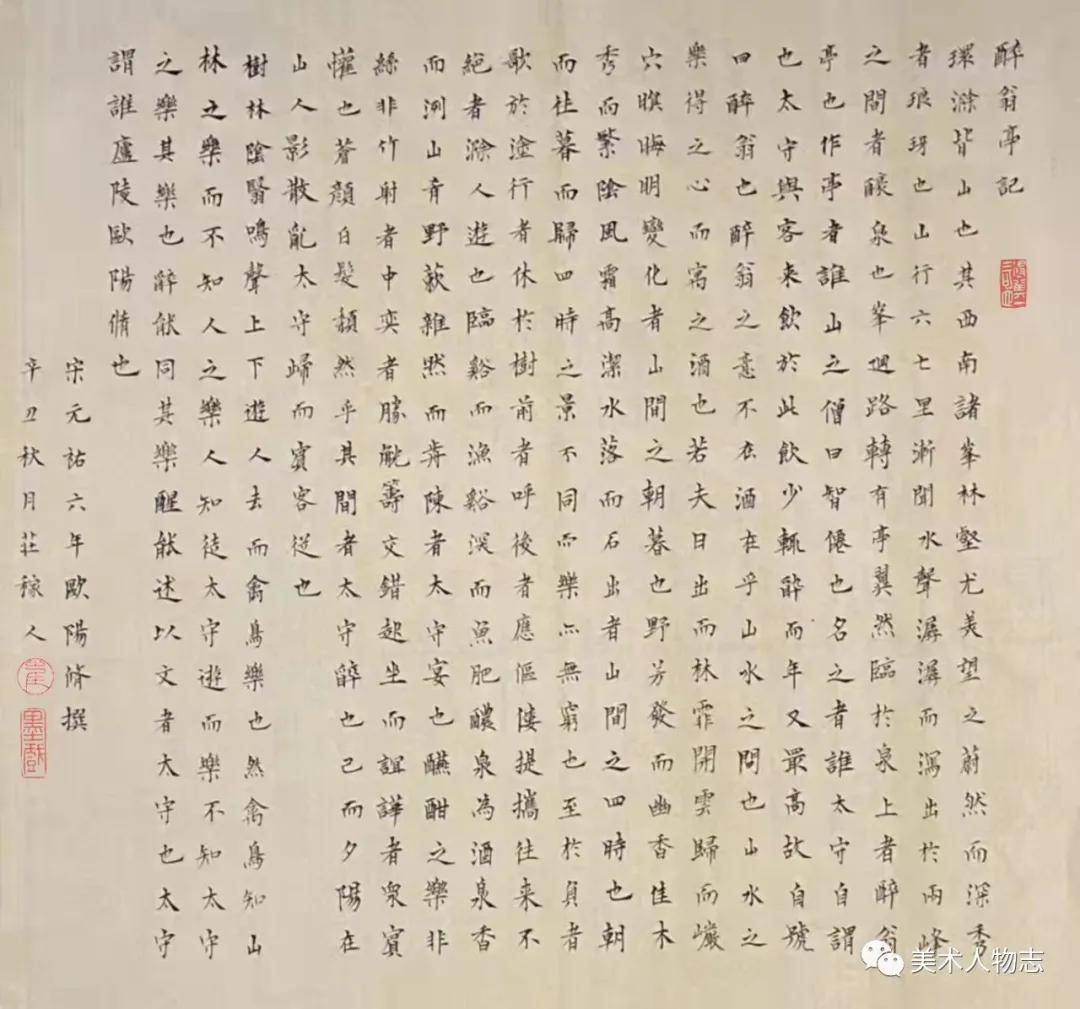 醉翁亭記
環滁皆山也其西南諸峯林壑尤美望之蔚然而深秀
者琅玡也山行六七里淅聞水聲潺潺而瀉出於兩峰
之間者釀泉也峯廻路轉有亭翼然臨於泉上者醉翁
亭也作亭者誰山之僧曰智僊也名之者誰太守自謂
也太守與客来飲於此飲少輒醉而年又最高故自號
曰醉翁也醉翁之意不在酒在乎山水之間也山水之
樂得之心而寓之酒也若夫日出而林霏開雲歸而巖
穴暝晦明變化者山間之朝暮也野芳發而幽香佳木
秀而繁陰風霜高潔水落而石出者山間之四時也朝
而往暮而歸四時之景不同而樂亦無窮也至於負者
歌於塗行者休於樹前者呼後者應傴僂提攜往来不
絕者滁人遊也臨谿而漁谿深而魚肥釀泉為酒泉香
而洌山肴野蔌雜然而前陳者太守宴也醼酣之樂非
絲非竹射者中奕者勝觥籌交錯起坐而諠譁者衆賓
懽也蒼顔白髮頹然乎其間者太守醉也已而夕陽在
山人影散亂太守歸而賓客従也
樹林陰翳鳴聲上下遊人去而禽鳥樂也然禽鳥知山
林之樂而不知人之樂人知徒太守遊而樂不知太守
之樂其樂也醉能同其樂醒能述以文者太守也太守
謂誰廬陵歐陽脩也
宋元祐六年歐陽脩撰
辛丑秋月莊稼人
美术人物志